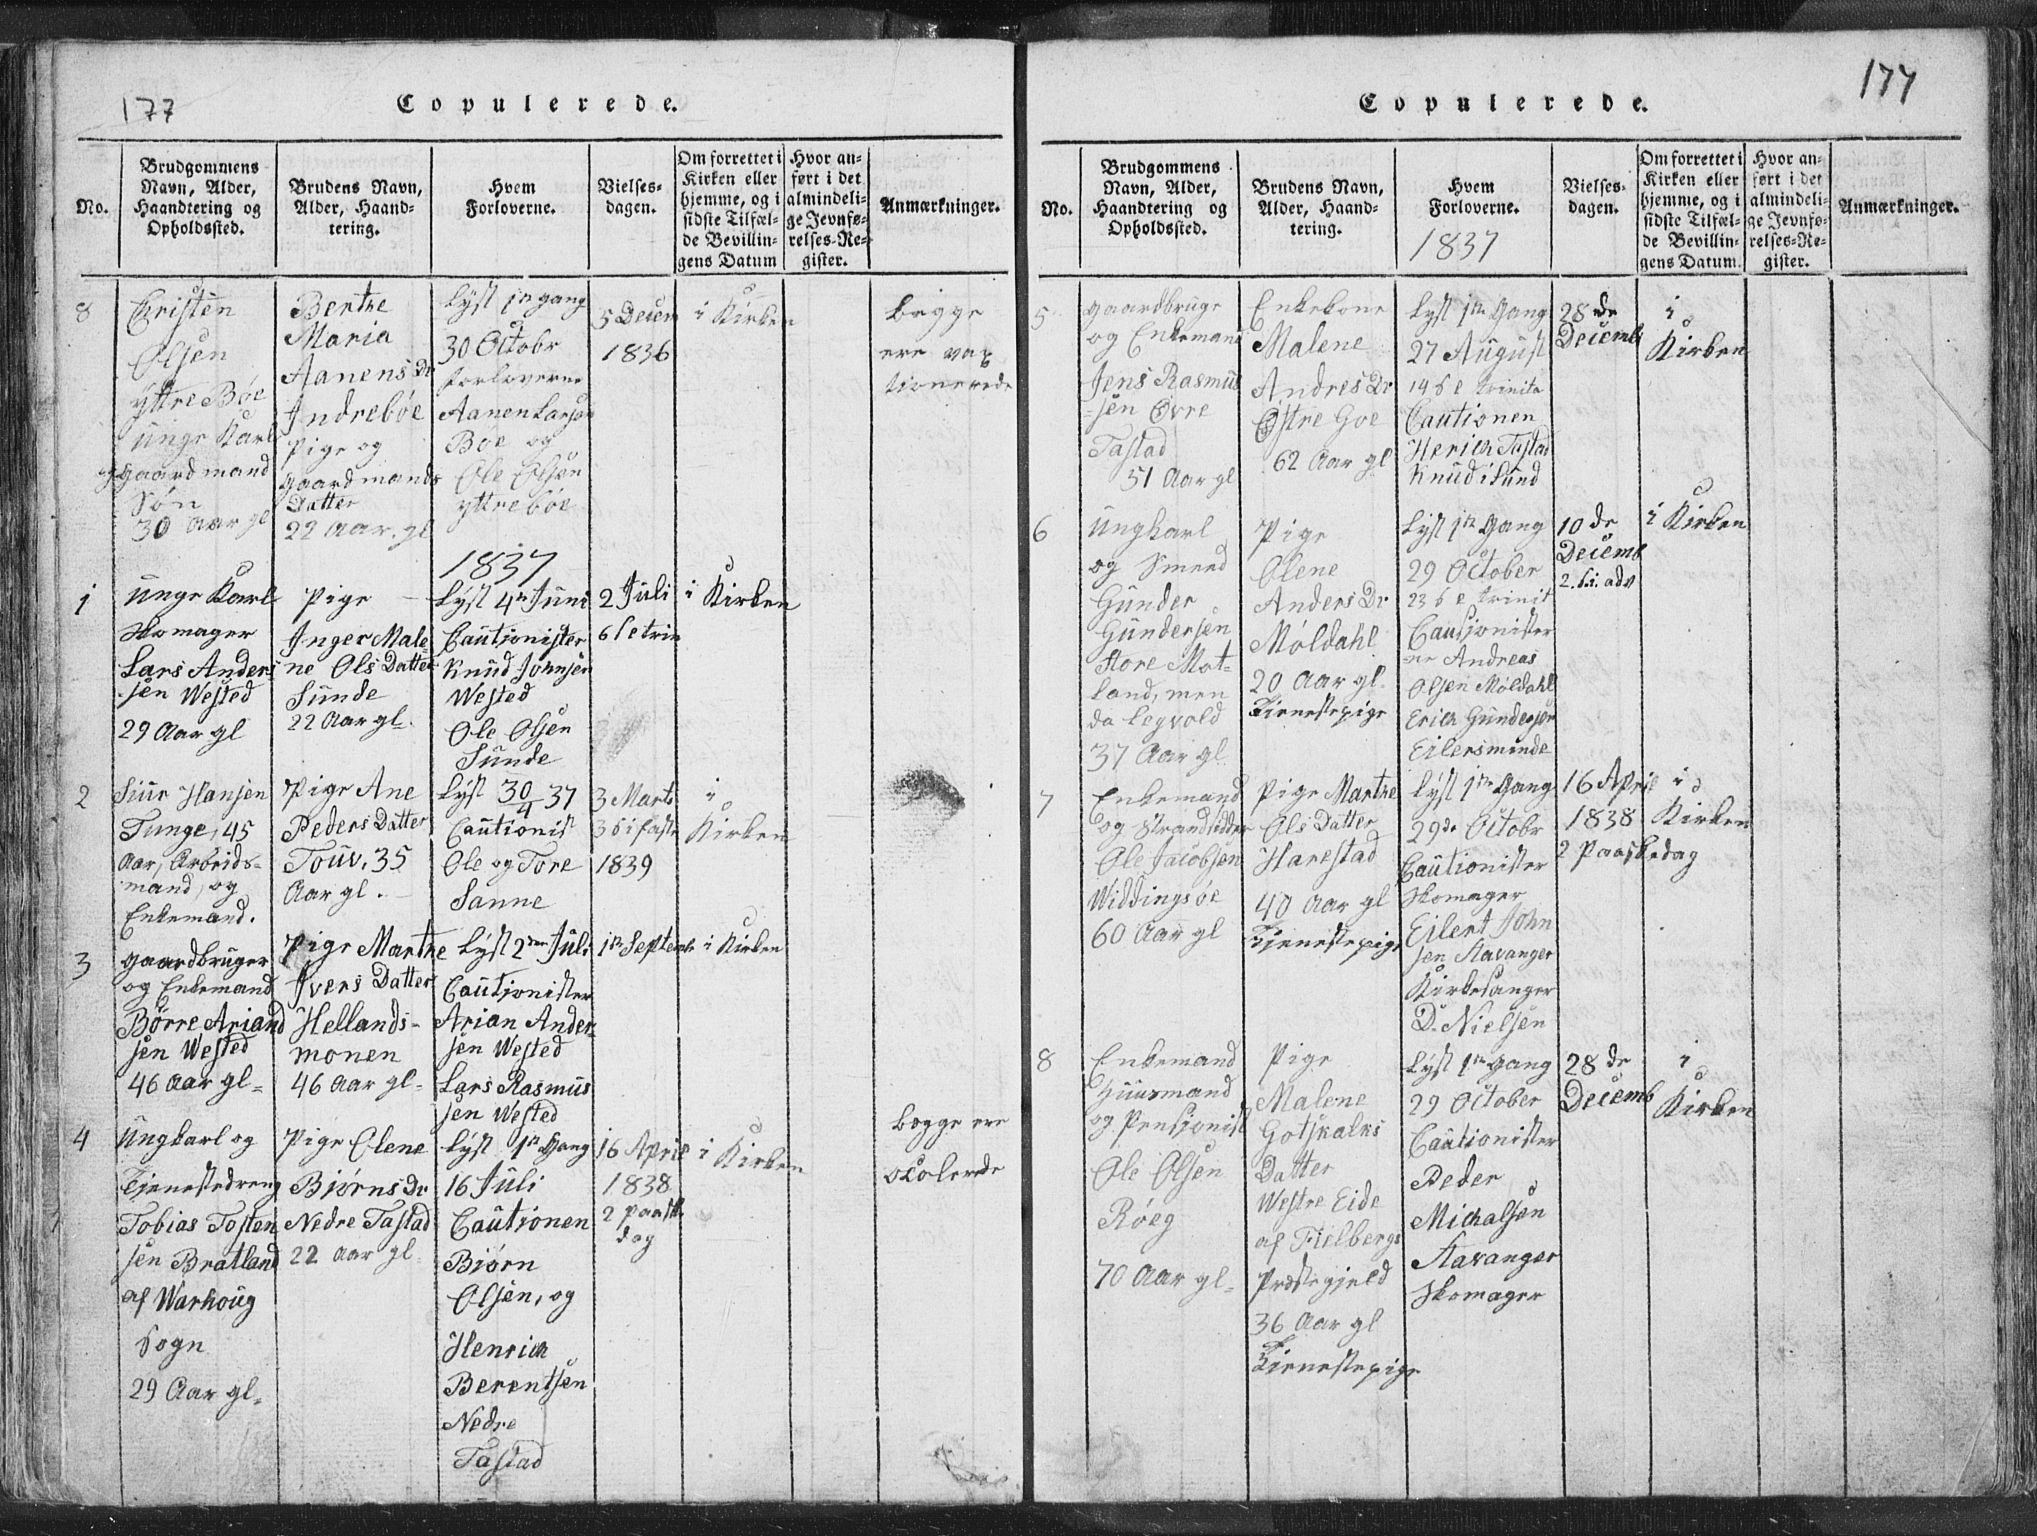 177
Copulerede.
No.
Brudgommens
Navn, Alder,
Haandtering og
Opholdssted.
Brudens Navn,
Alder, Haand-
tering.
Hvem
Forloverne.
Vielses-
dagen.
Om forrettet i
Kirken eller
hjemme, og i
sidste Tilfæl-
de Bevillin-
gens Datum
Hvor an-
ført i det
almindeli-
ge Jevnfø-
relses-Re-
gister.
Anmærkninger.
8
Christen
Olsen
yttre Bøe
Unge Karl
og gaardmand
Søn
30 Aar gl
Berthe
Maria
Aanens Dr
Indrebøe
Pige og
gaardmands
Datter
22 Aar. gl
Lyst 1te gang
30 Octobr
forloverne
Aanen Larsen
Boe og
Ole Olsen
yttrebøe
5 Decem
1836
i Kirken
begge
ere vax
tionerede
1837
1
Unge Karl
Skomager
Lars Anders
sen Wested
29 Aar gl
Pige
Inger Male
ne Ols Datter
Sunde
22 Aar gl.
Lyst 4de Juni
Cautionister
Knud Johnsen
Wested
Ole Olsen
Sunde
2 Juli
6 S e trin
i Kirken
2
Siur Hansen
Tunge, 45
Aar, Arbeids-
mand, og
Enkemand.
Pige Ane
Peders Datter
Touv, 35
Aar gl.
Lyst 30/4 37
Cautionist
Ole og Tore
Sanne
3 Marts
3 S i faste
1839
i
Kirken
3
gaardbruger
og Enkemand
Børre Ariand
sen Wested
46 Aar gl-
Pige Marthe
Ivers Datter
Hellands-
monen
46 Aar gl-
Lyst 2den Juli
Cautionister
Arian Ander-
sen Wested
Lars Rasmus
sen Wested
1te Septemb
i Kirken
4
Ungkarl og
Tjenestedreng
Tobias Tosten
sen Bratland
af Warhoug
Sogn
29 Aar gl-
Pige Olene
Bjørns Dr
Nedre Tastad
22 Aar gl.
Lyst 1te Gang
16 Juli
Cautionen
Bjørn
Olsen, og
Henrich
Berentsen
Nedre
Tastad
16 April
1838
2 paaske
dag
i Kirken
begge ere
ocolerede
177
Copulerede.
No.
Brudgommens
Navn, Alder,
Haandtering og
Opholdssted.
Brudens Navn,
Alder, Haand-
tering.
Hvem
Forloverne.
1837
Vielses-
dagen.
Om forrettet i
Kirken eller
hjemme, og i
sidste Tilfæl-
de Bevillin-
gens Datum.
Hvor an-
ført i det
almindeli-
ge Jevnfø-
relses-Re-
gister.
Anmærkninger.
5
gaardbruge
og Enkemand
Jens Rasmus
-sen Øvre
Tastad
51 Aar gl
Enkekone
Malene
Andres Dr
Østre Goe
62 Aar gl
Lyst 1te Gang
27 August
14 S e trinita
Cautionen
Herich Tastad
Knud i Sund
28 de
Decemb
i
Kirken
6
Ungkarl
og Smeed
Gunder
Gundersen
Store Mot-
land, men
da Legvold
37 Aar gl.
Pige
Olene
Anders Dr
Møldahl
20 Aar gl.
Tienestepige
Lyst 1te Gang
29 October
23 S e trinit
Cautjonister
ne Andreas
Olsen Møldahl
Erich Gundersen
Eilersminde
10 de
Decemb
2. S. i. adv
i Kirken
7
Enkemand
og Strandsidder
Ole Jacobsen
Widdingsøe
60 Aar gl
Pige Marthe
Ols Datter
Harestad
40 Aar gl
Tjenestepige
Lyst 1te Gang
29de Octobr
Cautionister
Skomager
Eilert John
sen Stavanger
Kirkesanger
D. Nielsen
16 April
1838
2 Paaskedag
i
Kirken
8
Enkemand
Huusmand
og Pensjonist
Ole Olsen
Røeg
70 Aar gl-
Pige
Malene
Gotskalks
Datter
Westre Eide
af Fielbergs
Præstegjeld
36 Aar gl
Tienestepige
Lyst 1te gang
29 October
Cautionister
Peder
Michalsen
Stavanger
Skomager
28 de
Decemb
i
Kirken